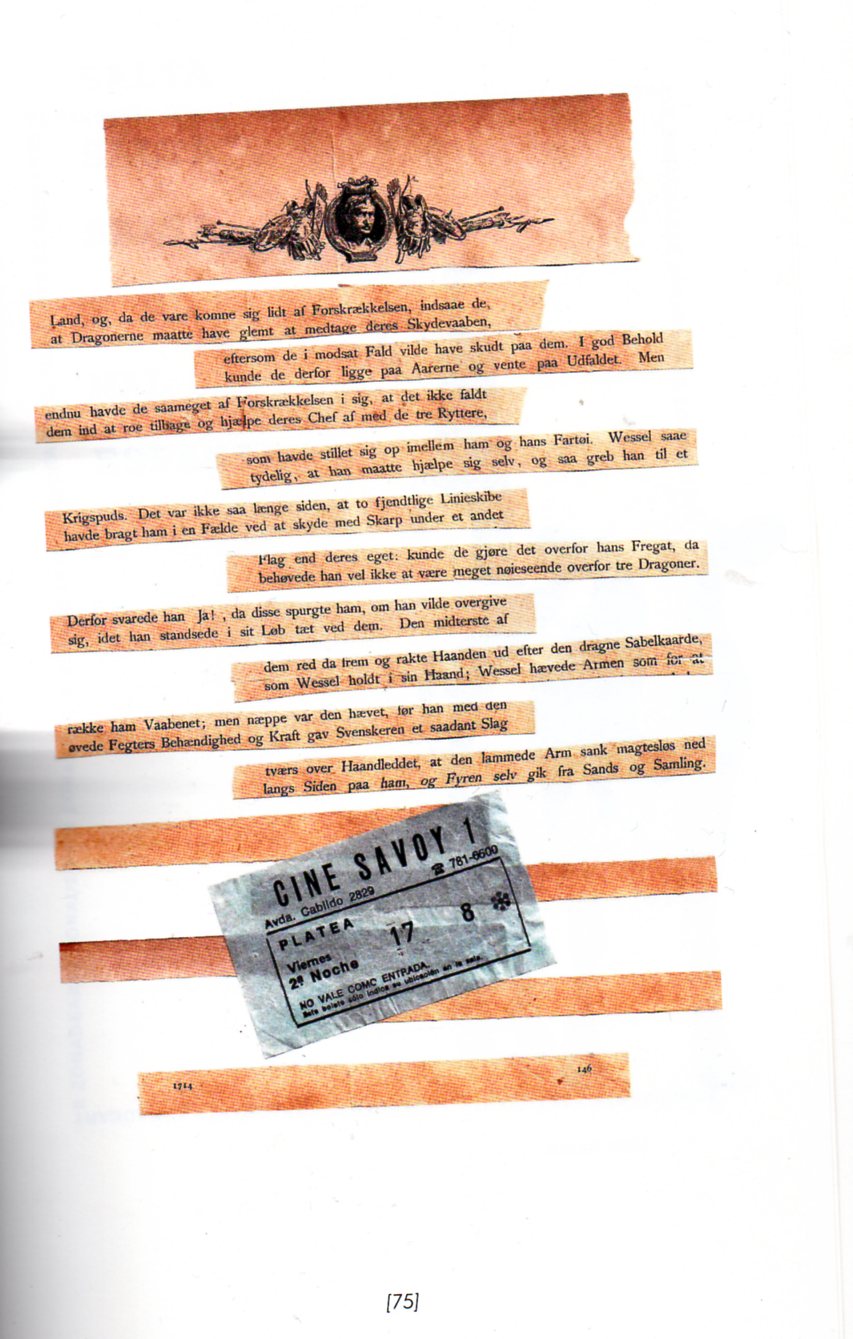 Land, og, da de vare komne sig lidt af Forskrækkelsen, indsaae de,
at Dragonerne maatte have glemt at medtage deres Skydevaaben,
eftersom de i modsat Fald vilde have skudt paa dem. I god Behold
kunde de derfor ligge paa Aarerne og vente paa Udfaldet. Men
endnu havde de saameget af Forskrækkelsen i sig, at det ikke faldt
dem ind at roe tilbage og hjælpe deres Chef af med de tre Ryttere,
som havde stillet sig op imellem ham og hans Fartøi. Wessel saae
tydelig, at han maatte hjælpe sig selv, og saa greb han til et
Krigspuds. Det var ikke saa længe siden, at to fjendtlige Linieskibe
havde bragt ham i en Fælde ved at skyde med Skarp under et andet
Flag end deres eget: kunde de gjøre det overfor hans Fregat, da
behøvede han vel ikke at være meget nøieseende overfor tre Dragoner.
Derfor svarede han Ja! , da disse spurgte ham, om han vilde overgive
sig, idet han standsede i sit Løb tæt ved dem. Den midterste af
dem red da frem og rakte Haanden ud efter den dragne Sabelkaarde,
som Wessel holdt i sin Haand; Wessel hævede Armen som for at
række ham Vaabenet; men næppe var den hævet, før han med den
øvede Fegters Behændighed og Kraft gav Svenskeren et saadant Slag
tværs over Haandleddet, at den lammede Arm sank magtesløs ned
langs Siden paa ham, og Fyren selv gik fra Sands og Samling.
CINE SAVOY 1
Avda. Cabildo 2829 ☎ 781-6600
PLATEA
17 8
Viernes
2ª Noche
NO VALE COMO ENTRADA.
Este boleto sólo indica su ubicación en la sala.
1714 146
[75]